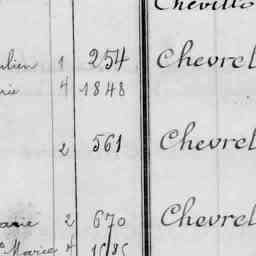 Chevillo
ulien 1 254 Chevrel
rie 4 1848
2 561 Chevrel
anie 2 670 Chevrel
Marie 4